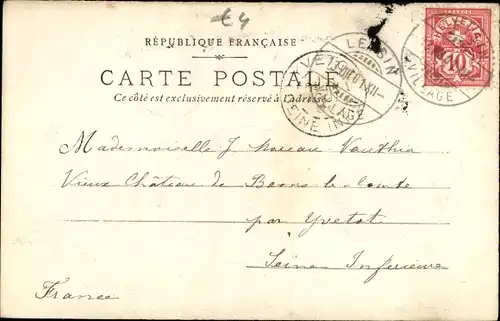 €4
RÉPUBLIQUE FRANÇAISE
CARTE POSTALE
Ce côté est exclusivement réservé à l'adresse
HELVETIA
10
LEYSIN
VILLAGE
YVETOT
SEINE INF
Mademoiselle J Moreau Vauthin
Vieux Château de Bosns-le-Comte
par Yvetot
Seine Inférieure
France